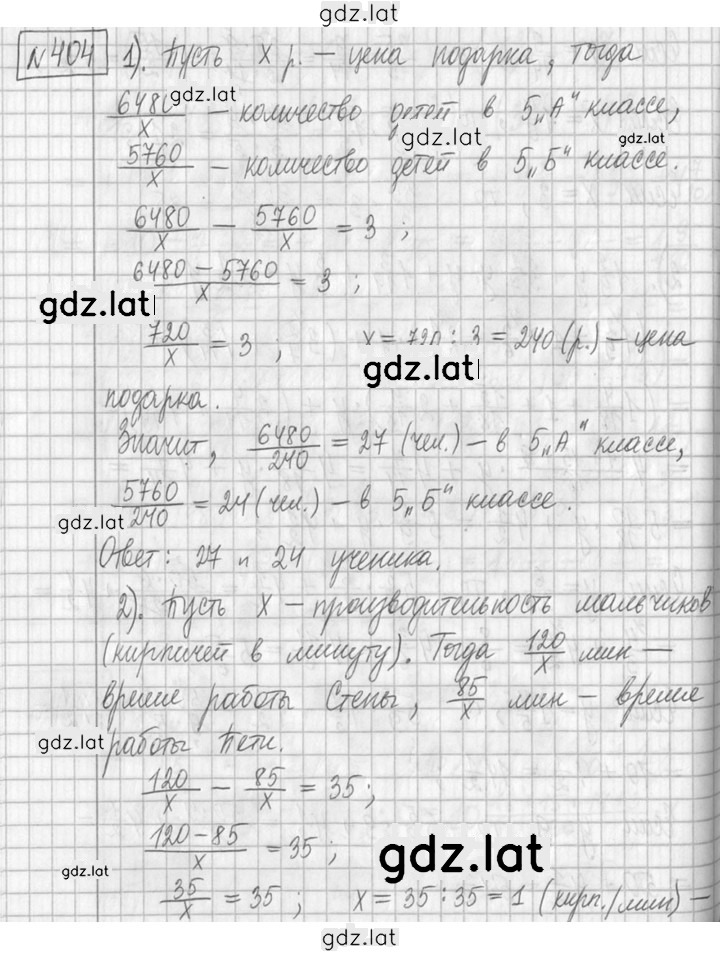 gdz.lat
№404 1). Пусть x р. – цена подарка, тогда
gdz.lat
6480/x – количество детей в 5„А" классе,
gdz.lat gdz.lat
5760/x – количество детей в 5„Б" классе.
6480/x – 5760/x = 3 ;
(6480 – 5760)/x = 3 ;
gdz.lat
720/x = 3 ; x = 720 : 3 = 240 (р.) – цена
gdz.lat
подарка.
Значит, 6480/240 = 27 (чел.) – в 5„А" классе,
5760/240 = 24 (чел.) – в 5„Б" классе.
gdz.lat
Ответ: 27 и 24 ученика.
2). Пусть x – производительность мальчиков
(кирпичей в минуту). Тогда 120/x мин –
время работы Степы, 85/x мин – время
gdz.lat
работы Пети.
120/x – 85/x = 35;
(120 – 85)/x = 35 ;
gdz.lat
gdz.lat
35/x = 35 ; x = 35 : 35 = 1 (кирп./мин) –
gdz.lat